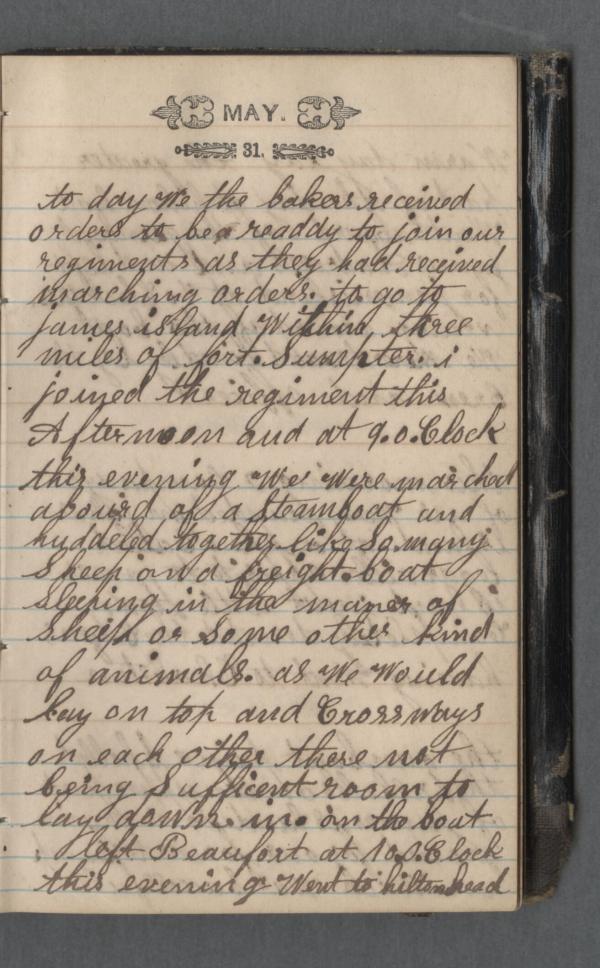 MAY.
31.
to day We the bakers received
orders to be a readdy to join our
regiments as they had received
marching orders. to go to
james island Within, three
miles of fort. Sumpter. i
joined the regiment this
Afternoon and at 9.o.Clock
this evening We Were marched
abourd of a Steamboat and
huddeled together like so many
Sheep on a freight boat
sleping in the maner of
Sheep or Some other kind
of animals. as We Would
lay on top and Crossways
on each other there not
being Sufficent room to
lay down. in. on the boat
left Beaufort at 10.o.Clock
this evening Went to hiltonhead